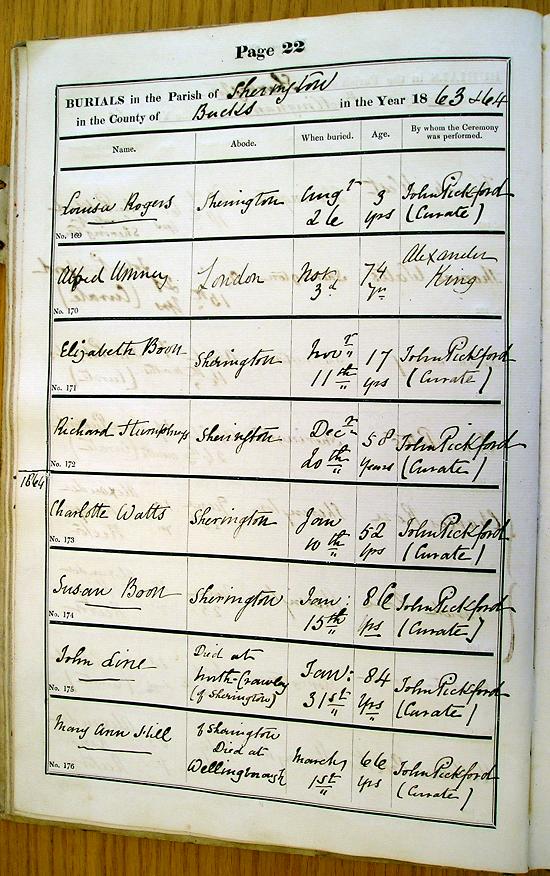 Page 22
BURIALS in the Parish of Sherington
in the County of Bucks in the Year 1863 & 64
Name. Abode. When buried. Age. By whom the Ceremony was performed.
Louisa Rogers Sherington Augt 3 John Pickford
26 yrs (Curate)
No. 169
Alfred Umney London Nov. 74 Alexander
3d yrs King
No. 170
Elizabeth Boon Sherington Novr 17 John Pickford
11th yrs (Curate)
No. 171
Richard Humphreys Sherington Decr 58 John Pickford
20th Years (Curate)
No. 172
1864
Charlotte Watts Sherington Jan 52 John Pickford
10th yrs (Curate)
No. 173
Susan Boon Sherington Jan: 86 John Pickford
15th yrs (Curate)
No. 174
John Line Died at Jan: 84 John Pickford
north-Crawley 31st yrs (Curate)
(of Sherington)
No. 175
Mary Ann Hill of Sherington March 66 John Pickford
Died at 1st yrs (Curate)
Wellingborough
No. 176